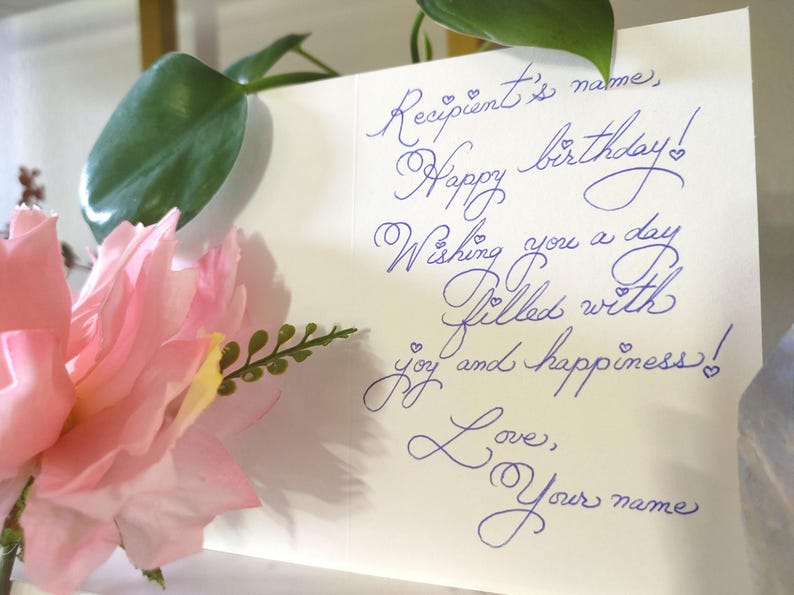 Recipient's name,
Happy birthday!
Wishing you a day
filled with
joy and happiness!
Love,
Your name